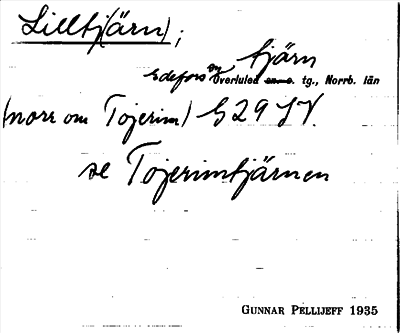 Lilltj(ärn);
tjärn
Edefors sn Överluleå sn o. tg., Norrb. län
(norr om Tojerim) G 29 SV.
se Tojerimtjärnen
GUNNAR PELLIJEFF 1935